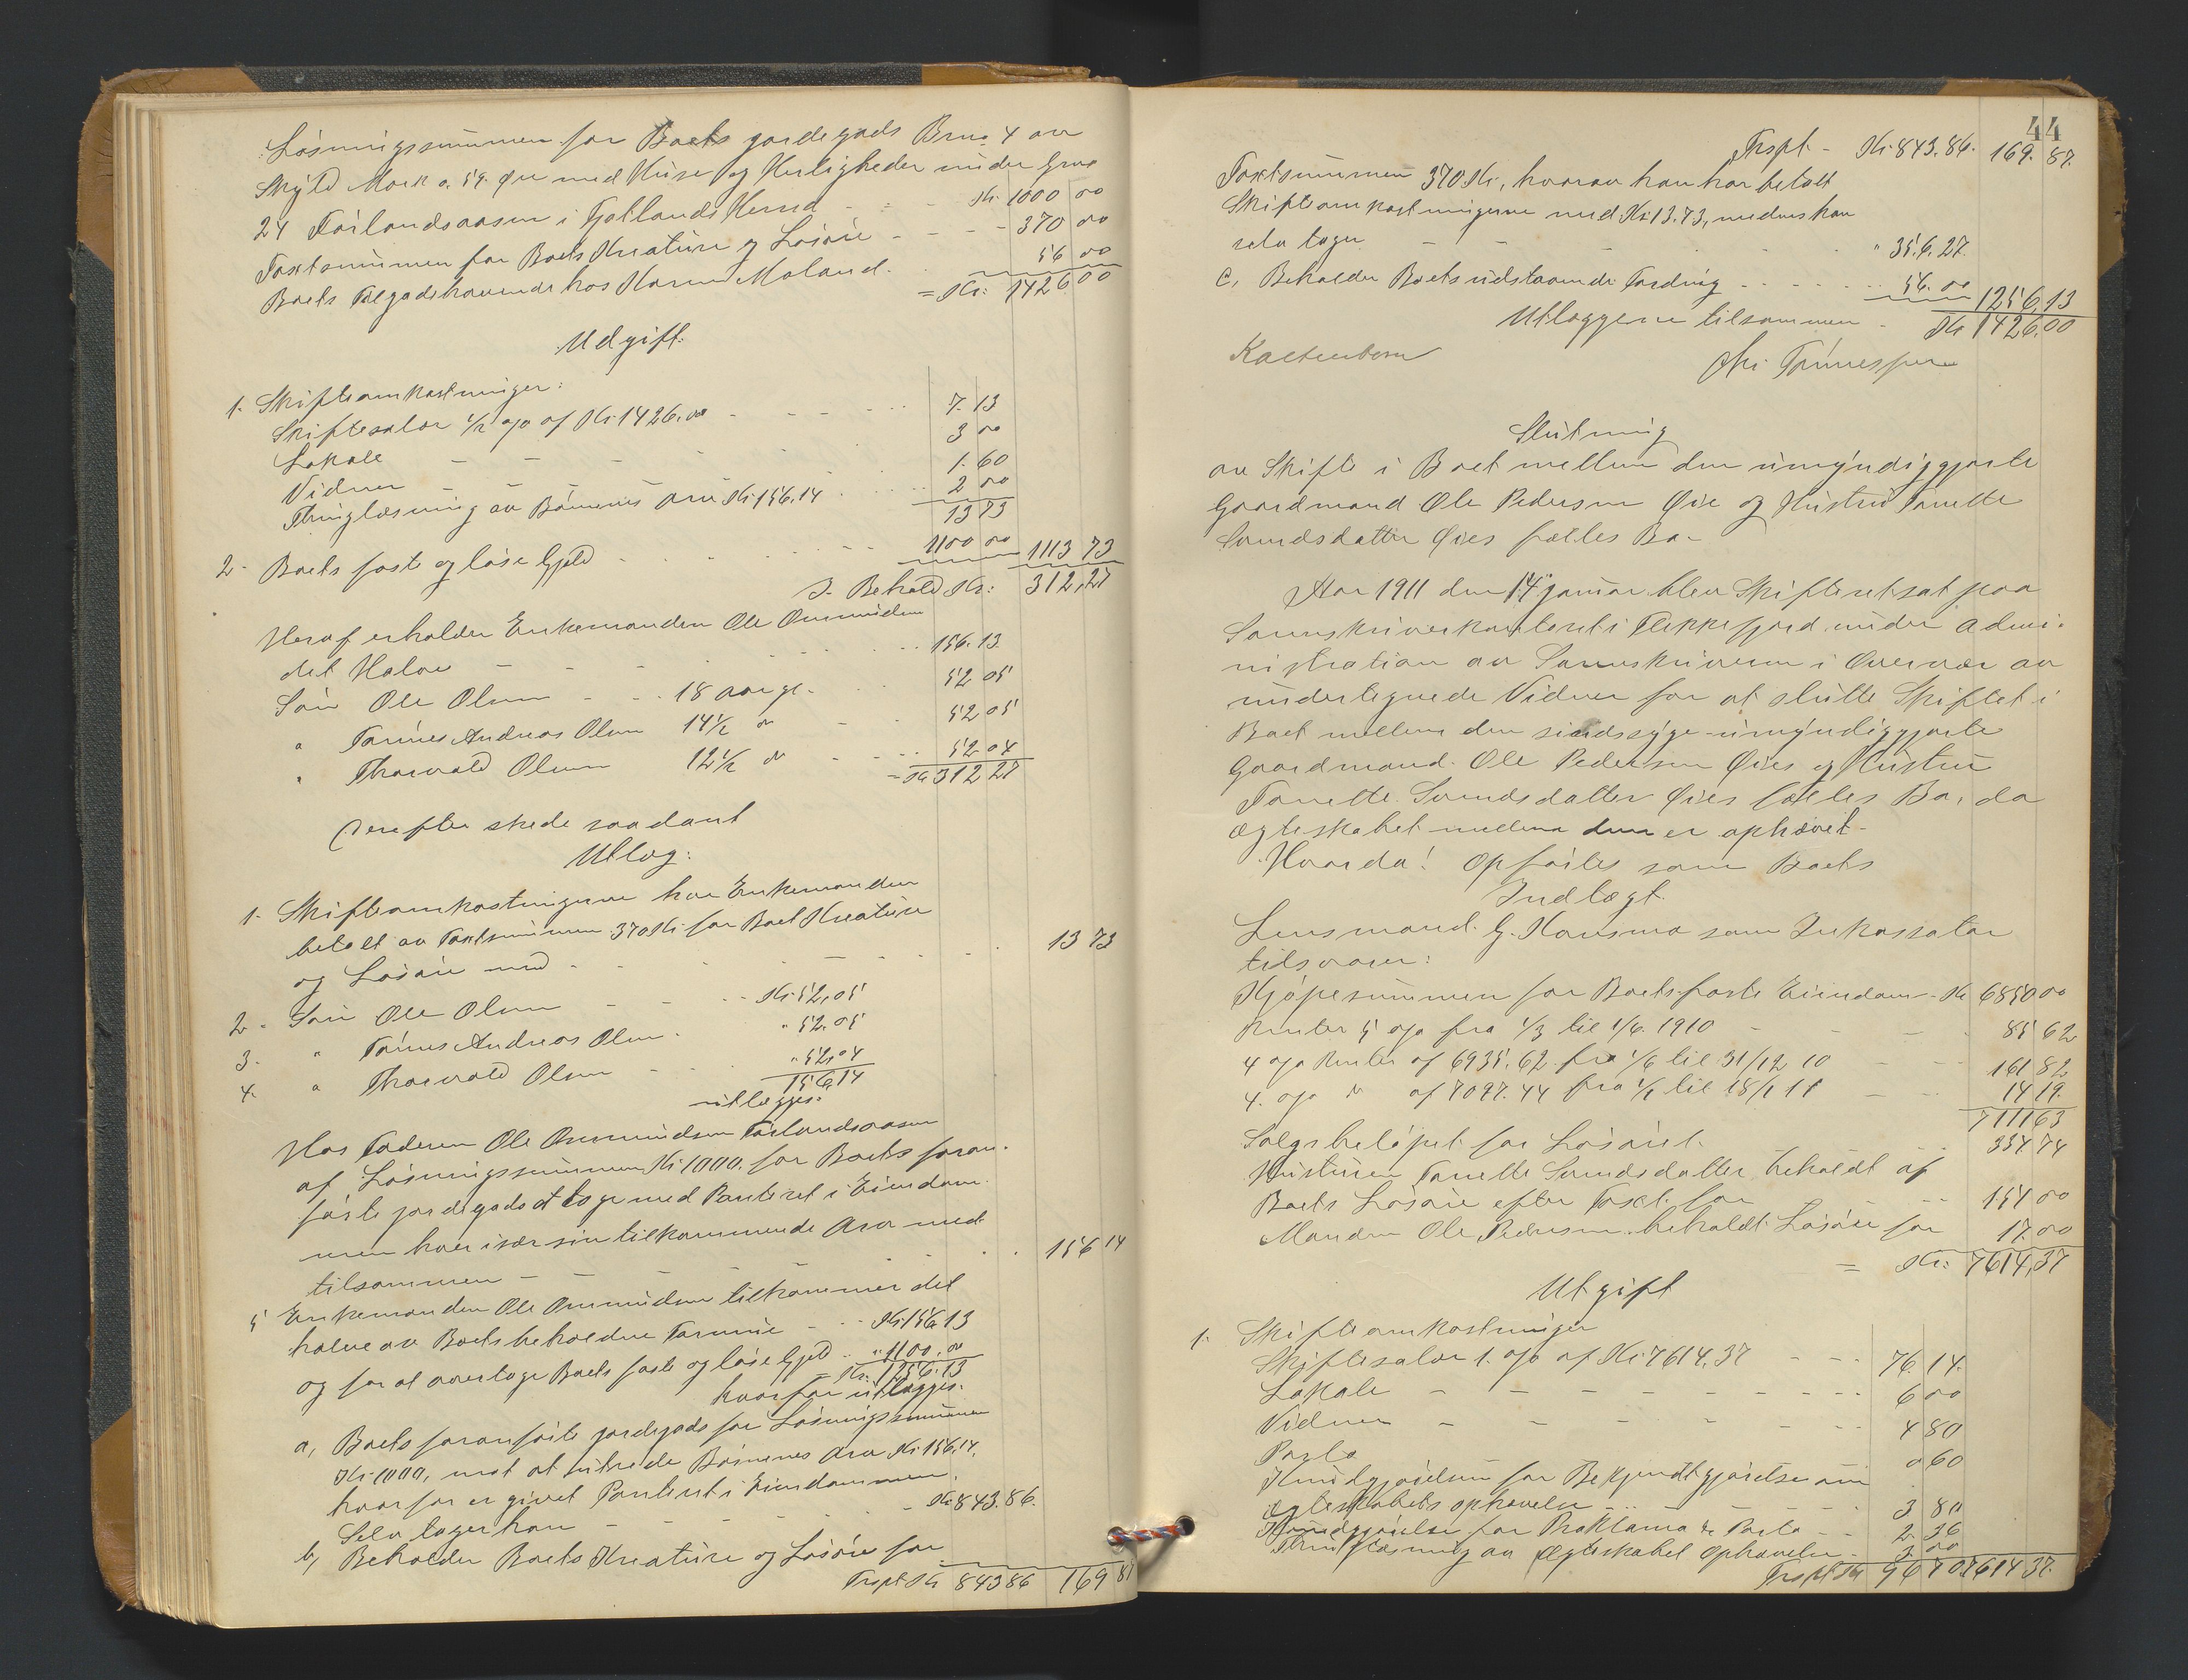 Løsningssummen for Boets jordegods Brno 4 av
Skyld Mark 0.59. Øre med Huse og Herligheder under Gno
24 Førlandsaasen i Fjotlands Herred - - - Kr. 1000 00
Taxtsummen for Boets Kreature og Løsøre - - - - 370 00
Boets Tilgodehavende hos Karen Moland. 56 00
= Kr: 1426 00
Udgift.
1. Skifteomkostninger:
Skiftesalær 1/2 o/o af Kr 1426.00 - - - 7. 13
Lokale - - - - 3 00
Vidner - - - - 1. 60
Thinglæsning av Børnenes Arv Kr 156.14 2 00
13 73
2. Boets faste og løse Gjeld - - - 1100 00 1113 73
I Behold Kr: 312,27
Heraf erholder Enkemanden Ole Osmundsen
det Halve - - - - 156.13
Søn Ole Olsen - - 18 aar gl. 52 05
" Tønnes Andreas Olsen 14 1/2 do - 52 05
" Thorvald Olsen 12 1/2 do - - 52 04
= Kr 312 27
Derefter skede saadant
Utlæg:
1. Skifteomkostningerne har Enkemanden
betalt av Taxtsummen 370 Kr for Boet Kreature
og Løsøre med - - - - 13 73
2. Søn Ole Olsen - - - Kr. 52,05
3. " Tønnes Andreas Olsen - " 52.05
4. " Thorvald Olsen - - " 52,04
156,14
utlægges:
Hos Faderen Ole Osmundsen Førlandsaasen
af Løsningssummen Kr 1000. for Boets foran-
førte jordegods at tage med Panteret i Eiendom-
men hver især sin tilkommende Arv med
tilsammen - - - - 156 14
5 Enkemanden Ole Osmundsen tilkommer det
halve av Boets beholdne Formue - - Kr 156,13
og for at overtage Boets faste og løse Gjeld - " 1100.00
Kr. 1256.13
hvorfor utlægges:
a, Boets foranførte jordegods for Løsningssummen
Kr 1000, mot at utrede Børnenes Arv Kr 156.14,
hvorfor er givet Panteret i Eiendommen.
Selv tager han - - - - Kr 843.86.
b, Beholder Boets Kreature og Løsøre for
Trspt Kr 843 86 169 87
44
Trspt - Kr. 843.86. 169. 87.
Taxtsummen 370 Kr, hvorav han har betalt
Skifteomkostningerne med Kr: 13.73, medens han
selv tager - - - - " 356.27.
c, Beholder Boets udstaaende Fordring - - - - 56.00 1256,13
Utlæggene tilsammen - Kr 1426.00
Slutning
av Skifte i Boet mellem den umyndiggjorte
Gaardmand Ole Pedersen Øie og Hustru Tonette
Svendsdatter Øies fælles Bo -
Aar 1911 den 14 januar blev Skifteret sat paa
Sorenskriverkontoret i Flekkefjord under Admi-
nistration av Sorenskriveren i Overvær av
undertegnede Vidner for at slutte Skiftet i
Boet mellem den sindssyge umyndiggjorte
Gaardmand Ole Pedersen Øies og Hustru
Tonette Svendsdatter Øies fælles Bo, da
ægteskabet mellem dem er ophævet -
Hvorda! opførtes som Boets
Indtægt.
Lensmand G. Hansma som Inkassator
tilsvarer:
Kjøpesummen for Boets faste Eiendom - Kr 6850 00
Renter 5 o/o fra 1/3 til 1/6. 1910 - - 85 62
4 o/o Renter af 6935.62 fra 1/6 til 31/12 10 - - 161 82
4. o/o do af 7097.44 fra 1/1 til 18/1 11 - - 14 19.
7111 63
Salgsbeløpet for Løsøret. - - 334 74
Hustruen Tonette Svendsdatter beholdt af
Boets Løsøre efter Taxt for - - - 151 00
Manden Ole Pedersen beholdt Løsøre for 17.00
= Kr: 7614,37
Utgift
1. Skifteomkostninger
Skiftesalær 1. o/o af Kr 7614,37 - - - 76 14.
Lokale - - - - - - - - 6 00
Vidner - - - - - - 4 80
Porto 0 60
Kundgjørelsen for Bekjendtgjørelse om
ægteskabets ophævelse - - - - - 3 80
Kundgjørelse for Proklama & Porto - - 2 36
Thinglæsning av Ægteskabet Ophævelse - 3. 00
Trspt Kr 96 70 7614 37.